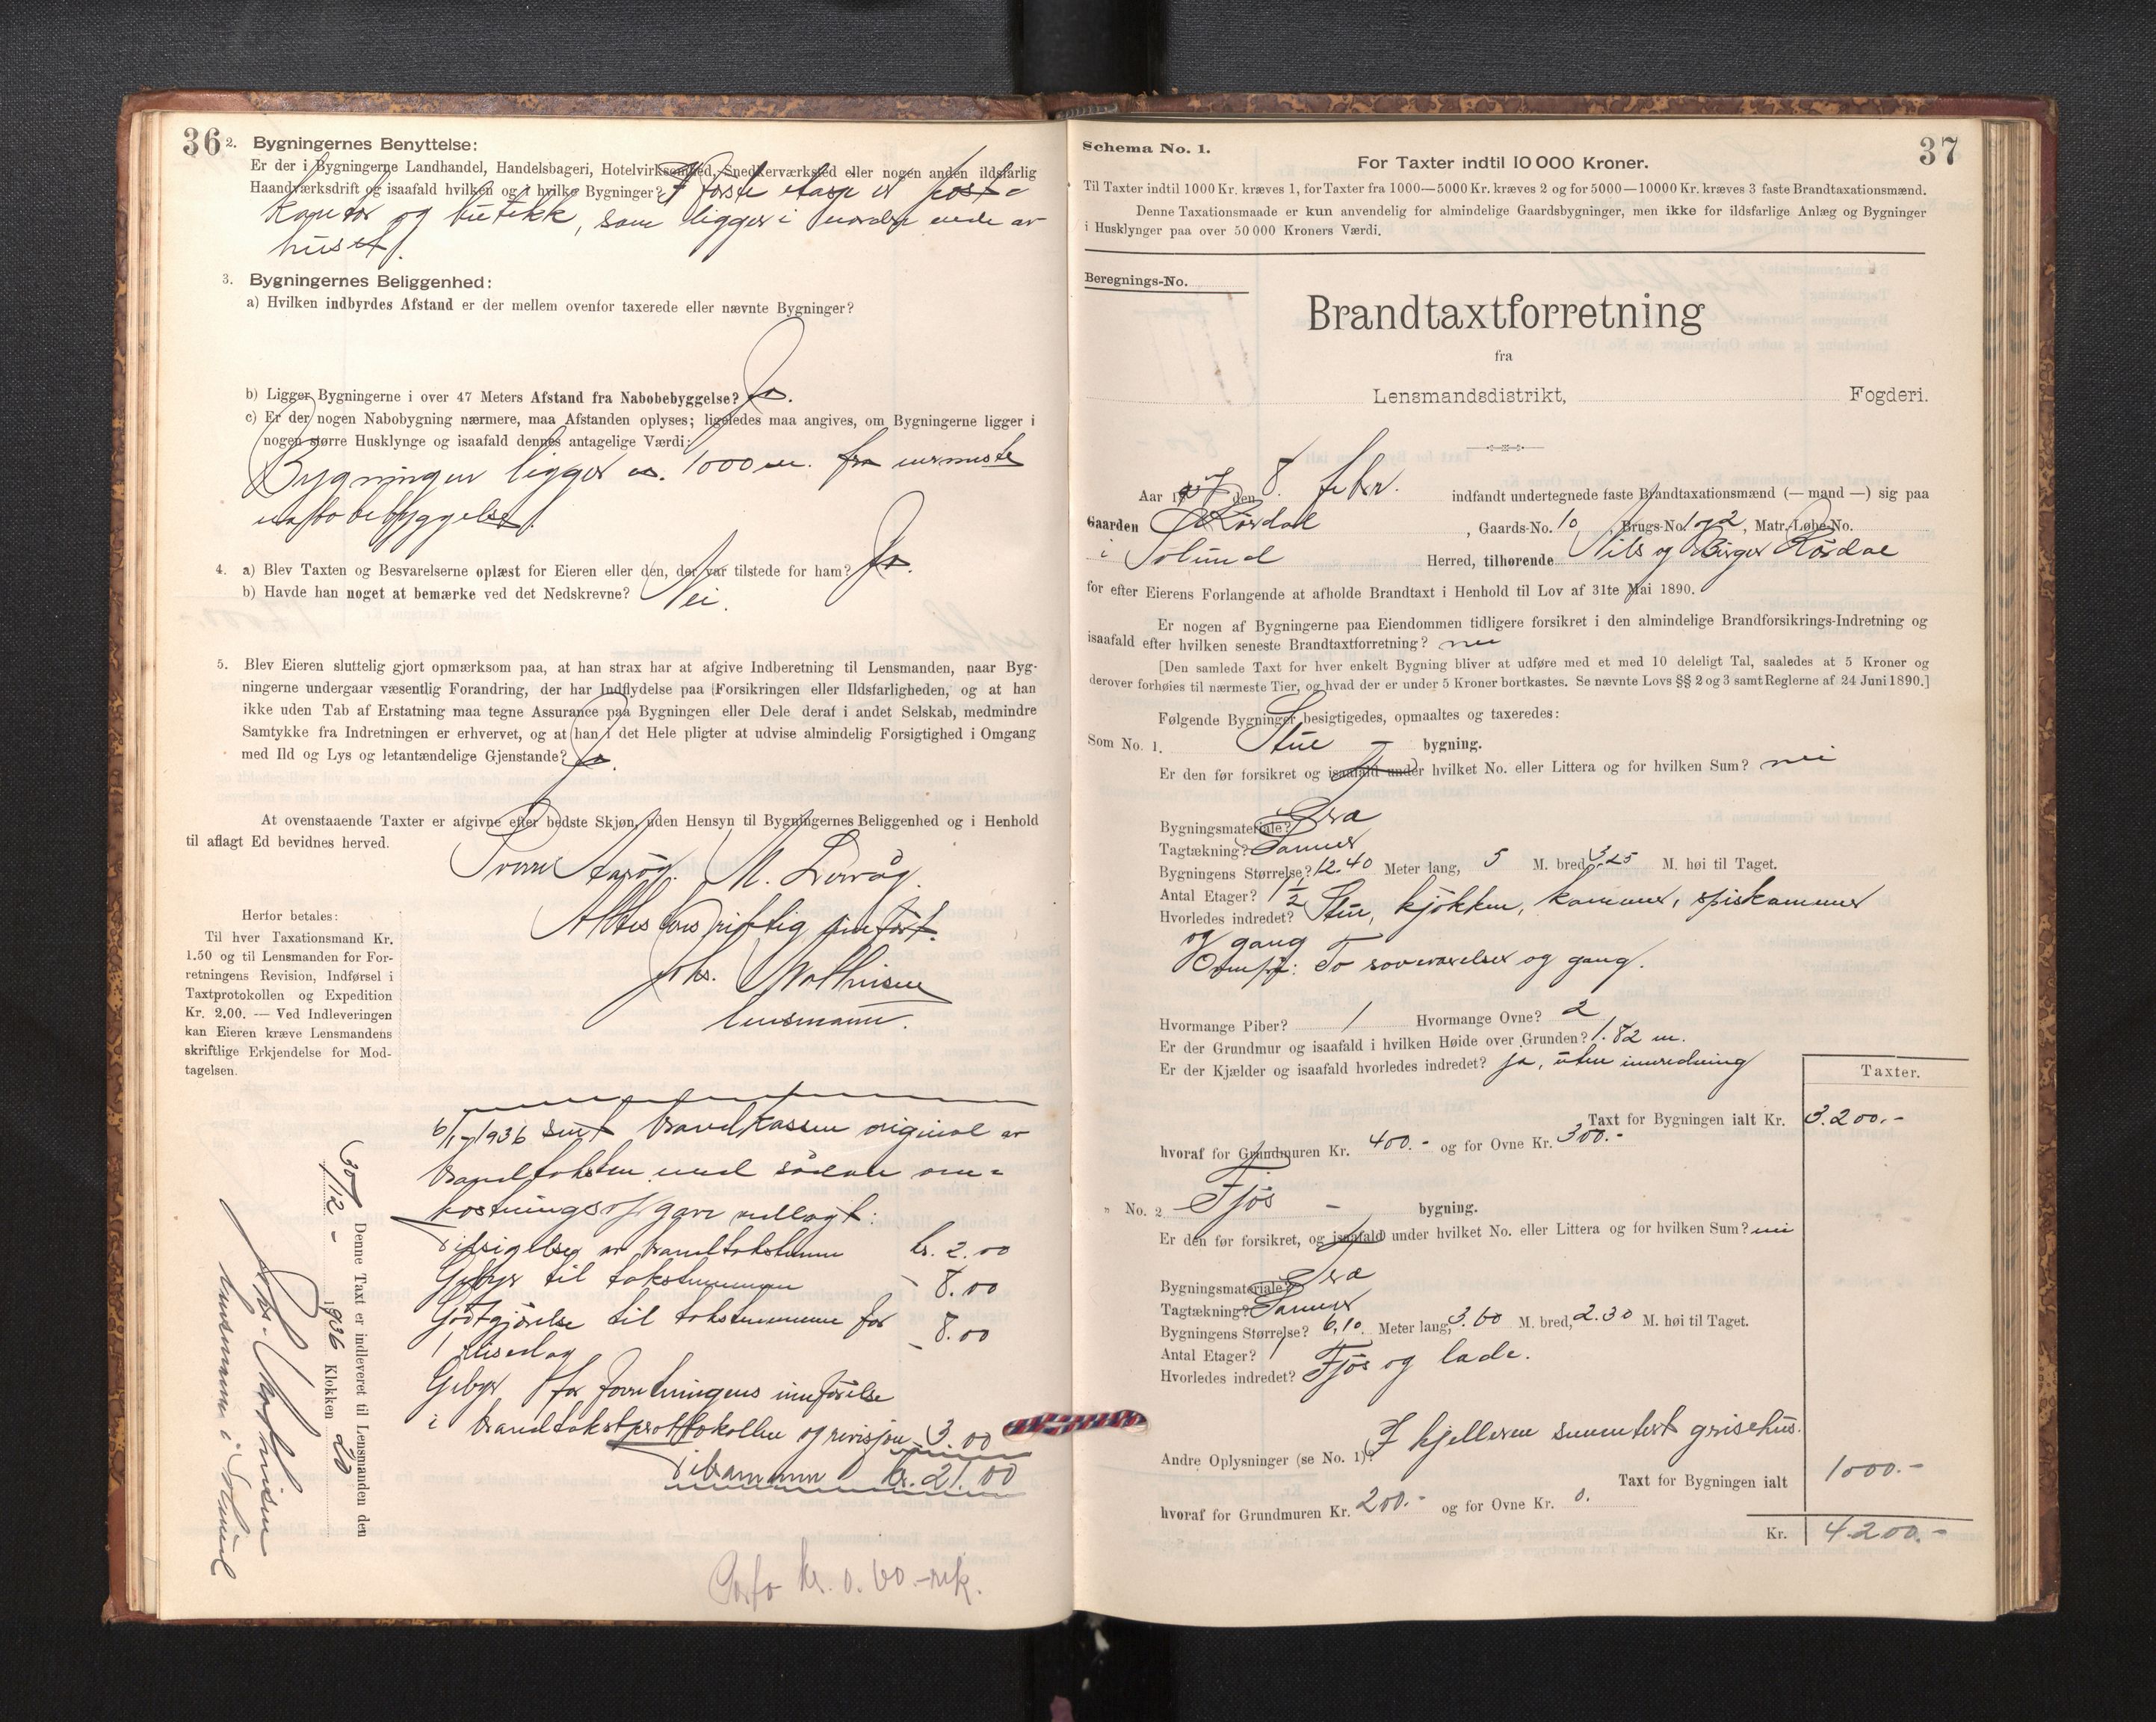 36
2. Bygningernes Benyttelse:
Er der i Bygningerne Landhandel, Handelsbageri, Hotelvirksomhed, Snedkerværksted eller nogen anden ildsfarlig
Haandværksdrift og isaafald hvilken og i hvilke Bygninger? I første etasje er post-
kontor og butikk, som ligger i nordre ende av
huset.
3. Bygningernes Beliggenhed:
a) Hvilken indbyrdes Afstand er der mellem ovenfor taxerede eller nævnte Bygninger?
b) Ligger Bygningerne i over 47 Meters Afstand fra Nabobebyggelse? Ja.
c) Er der nogen Nabobygning nærmere, maa Afstanden oplyses; ligeledes maa angives, om Bygningerne ligger i
nogen større Husklynge og isaafald dennes antagelige Værdi:
Bygningen ligger ca. 1000 m. fra nærmeste
nabobebyggelse.
4. a) Blev Taxten og Besvarelserne oplæst for Eieren eller den, der var tilstede for ham? Ja.
b) Havde han noget at bemærke ved det Nedskrevne? Nei.
5. Blev Eieren sluttelig gjort opmærksom paa, at han strax har at afgive Indberetning til Lensmanden, naar Byg-
ningerne undergaar væsentlig Forandring, der har Indflydelse paa Forsikringen eller Ildsfarligheden, og at han
ikke uden Tab af Erstatning maa tegne Assurance paa Bygningen eller Dele deraf i andet Selskab, medmindre
Samtykke fra Indretningen er erhvervet, og at han i det Hele pligter at udvise almindelig Forsigtighed i Omgang
med Ild og Lys og letantændelige Gjenstande? Ja.
At ovenstaaende Taxter er afgivne efter bedste Skjøn, uden Hensyn til Bygningernes Beliggenhed og i Henhold
til aflagt Ed bevidnes herved.
M.
riktig innført.
Johs. Mathisen
lensmann.
Herfor betales:
Til hver Taxationsmand Kr.
1.50 og til Lensmanden for For-
retningens Revision, Indførsel i
Taxtprotokollen og Expedition
Kr. 2.00. — Ved Indleveringen
kan Eieren kræve Lensmandens
skriftlige Erkjendelse for Mod-
tagelsen.
1936 sent brandkassen original av
brandtaksten med sådan om-
kostningsoppgave vedlagt:
Tilsigelse av brandtakstmenn kr. 2.00
Gebyr til takstmennene - 8.00
Godtgjørelse til takstmennene for
1 reisedag - 8.00
Gebyr for forretningens innførelse
i brandtakstprotokollen og revisjon - 3.00
Tilsammen kr. 21.00
Porto kr. 0.60.- rek.
Denne Taxt er indleveret til Lensmanden den
30/12 - 1936 Klokken 20
Johs. Mathisen
lensmann i Solund
37
Schema No. 1.
For Taxter indtil 10 000 Kroner.
Til Taxter indtil 1000 Kr. kræves 1, for Taxter fra 1000—5000 Kr. kræves 2 og for 5000—10000 Kr. kræves 3 faste Brandtaxationsmænd.
Denne Taxationsmaade er kun anvendelig for almindelige Gaardsbygninger, men ikke for ildsfarlige Anlæg og Bygninger
i Husklynger paa over 50 000 Kroners Værdi.
Beregnings-No.
Brandtaxtforretning
fra
Lensmandsdistrikt, Fogderi.
Aar 1937 den 8. febr. indfandt undertegnede faste Brandtaxationsmænd (— mand —) sig paa
Gaarden Rørdal, Gaards-No. 10, Brugs-No. 1 og 2, Matr.-Løbe-No.
i Solund Herred, tilhørende Nils og Birger Rørdal
for efter Eierens Forlangende at afholde Brandtaxt i Henhold til Lov af 31te Mai 1890.
Er nogen af Bygningerne paa Eiendommen tidligere forsikret i den almindelige Brandforsikrings-Indretning og
isaafald efter hvilken seneste Brandtaxtforretning? nei
[Den samlede Taxt for hver enkelt Bygning bliver at udføre med et med 10 deleligt Tal, saaledes at 5 Kroner og
derover forhøies til nærmeste Tier, og hvad der er under 5 Kroner bortkastes. Se nævnte Lovs §§ 2 og 3 samt Reglerne af 24 Juni 1890.]
Følgende Bygninger besigtigedes, opmaaltes og taxeredes:
Som No. 1. Stue - bygning.
Er den før forsikret og isaafald under hvilket No. eller Littera og for hvilken Sum? nei
Bygningsmateriale? Træ
Tagtækning?
Bygningens Størrelse? 12.40 Meter lang, 5 M. bred, 3.25 M. høi til Taget.
Antal Etager? 1 1/2
Hvorledes indredet? Stue, kjøkken, kammer, spiskammer
og gang
Ovenpå: To soveværelser og gang.
Hvormange Piber? 1 Hvormange Ovne? 2
Er der Grundmur og isaafald i hvilken Høide over Grunden? 1.82 m.
Er der Kjælder og isaafald hvorledes indredet? ja, uten innredning
Taxter.
Taxt for Bygningen ialt Kr. 3.200.-
hvoraf for Grundmuren Kr. 400.- og for Ovne Kr. 300.-
" No. 2 Fjøs - bygning.
Er den før forsikret, og isaafald under hvilket No. eller Littera og for hvilken Sum? nei
Bygningsmateriale? Træ
Tagtækning?
Bygningens Størrelse? 6,10 Meter lang, 3.60 M. bred, 2.30 M. høi til Taget.
Antal Etager? 1
Hvorledes indredet? Fjøs og lade.
Andre Oplysninger (se No. 1)? I kjelleren sementert grisehus.
Taxt for Bygningen ialt 1000.-
hvoraf for Grundmuren Kr. 200.- og for Ovne Kr. 0.
Kr. 4200.-